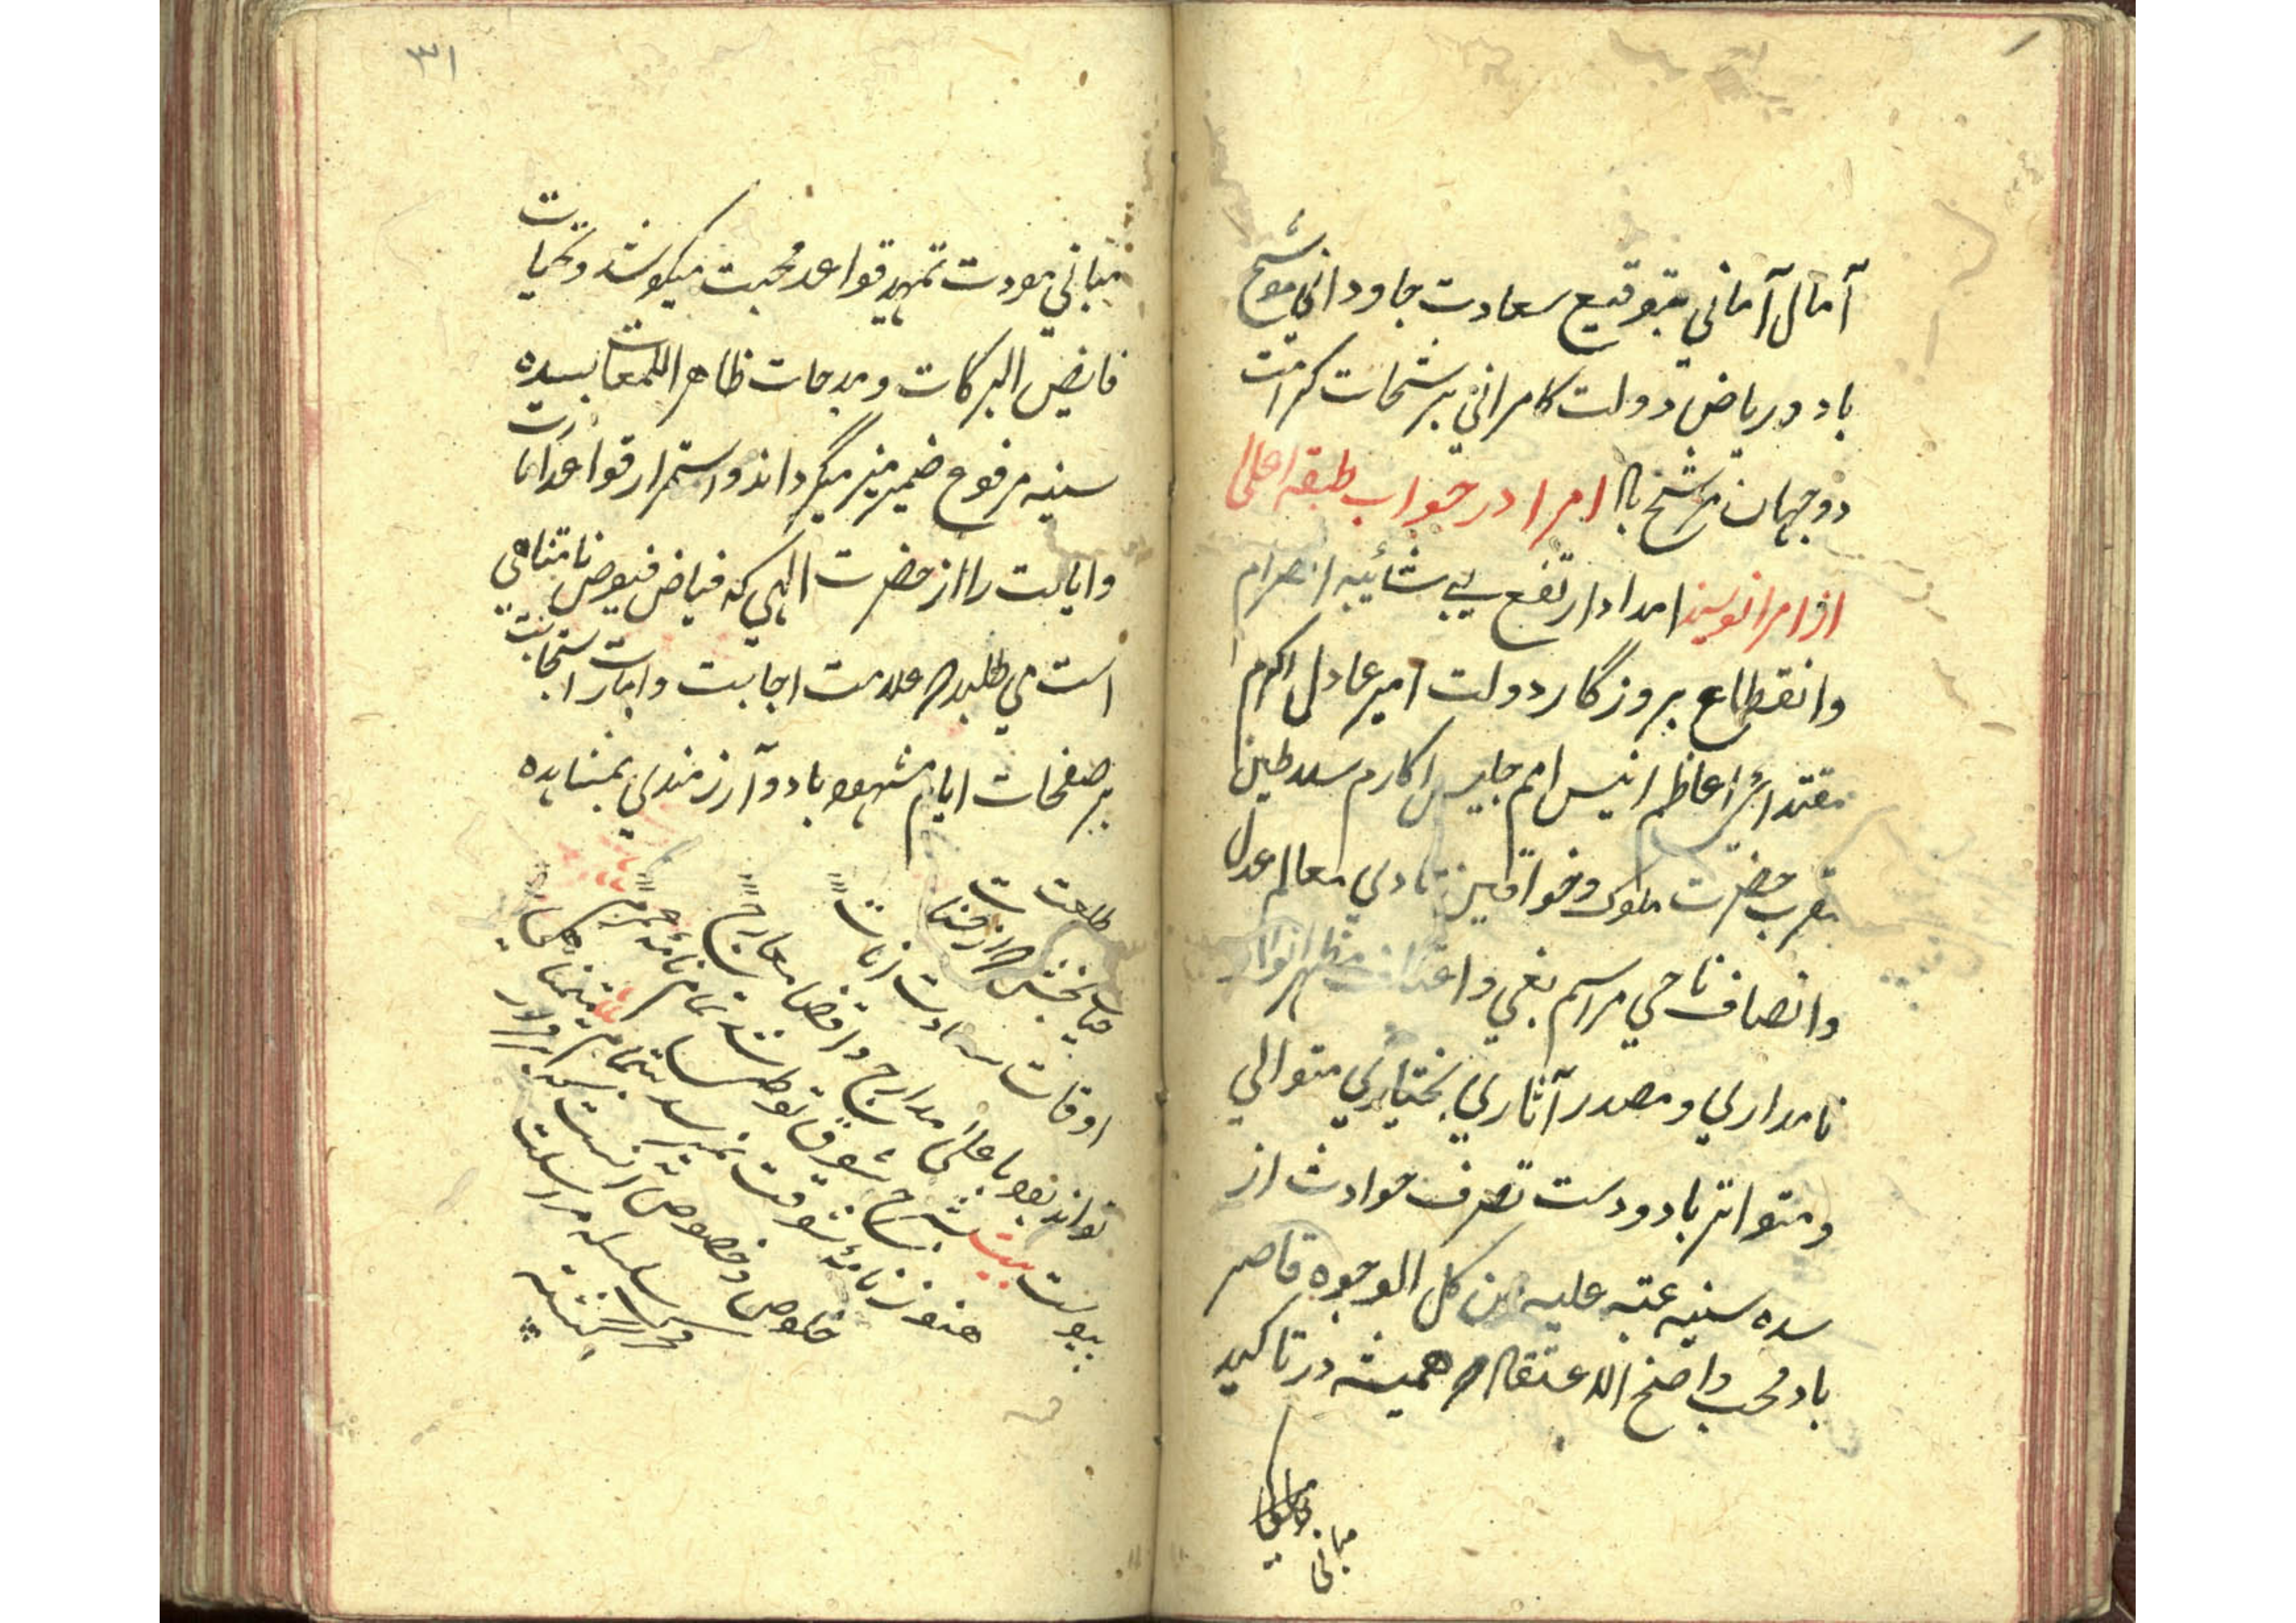 آمال آمانی بتوقیع سعادت جاودانی موشح
باد و ریاض دولت کامرانی برشحات کرامت
دو جهان مرشح باد امرا در جواب طبقه اعلی
از امرا نویسند امداد ارتفع بی شائبه انصرام
وانقطاع بروزگار دولت امیر عادل اکرم
مقتدای اعاظم انیس امم جلیس اکارم سلاطین
مقرب حضرت ملوک وخواقین هادی معالم عدل
وانصاف ماحی مراسم بغی واعتساف مظهر انوار
نامداری ومصدر آثاری بختیاری متوالی
ومتواتر باد ودست تصرف حوادث از
سده سنیه عتبه علیه من کل الوجوه قاصر
باد محب واضح الاعتقاد همیشه در تاکید
مبانی
۳۱
مبانی مودت تمهید قواعد محبت میکوشد وتحیات
فایض البرکات ومدحات ظاهر اللمعات بسده
سنیه مرفوع ضمیر منیر میگرداند واستمرار قواعد امارت
وایالت را از حضرت الهی که فیاض فیوض نامتناهی
است می طلبد علامت اجابت وامارات استجابت
بر صفحات ایام مشهود باد وآرزومندی بمشاهده
طلعت
حیات بخش
اوقات سعادت
تواند بود باعلی مدارج واقصا معارج
پیوست بیت شرح شوق
هنوز نامه شوقت نمیرسد بتمام
خلوص وخصوص آنست که
سلسله مراسلت